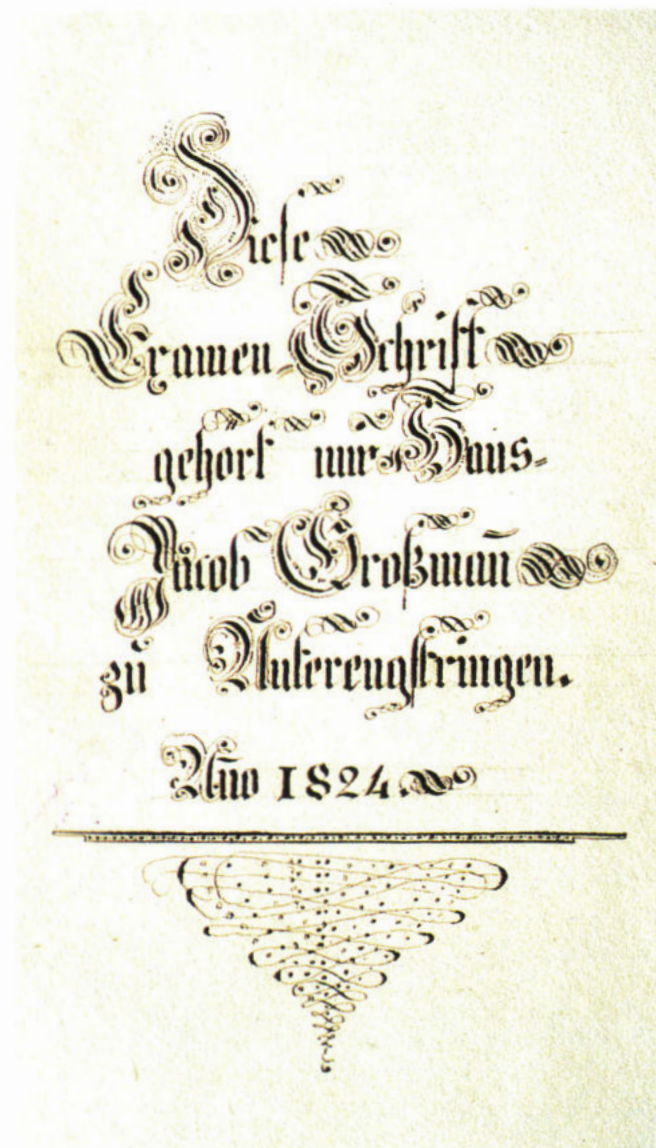 Diese
Examen-Schrift
gehört mir Hans-
Jacob Großman̄
zu Unterengstringen.
Año 1824.